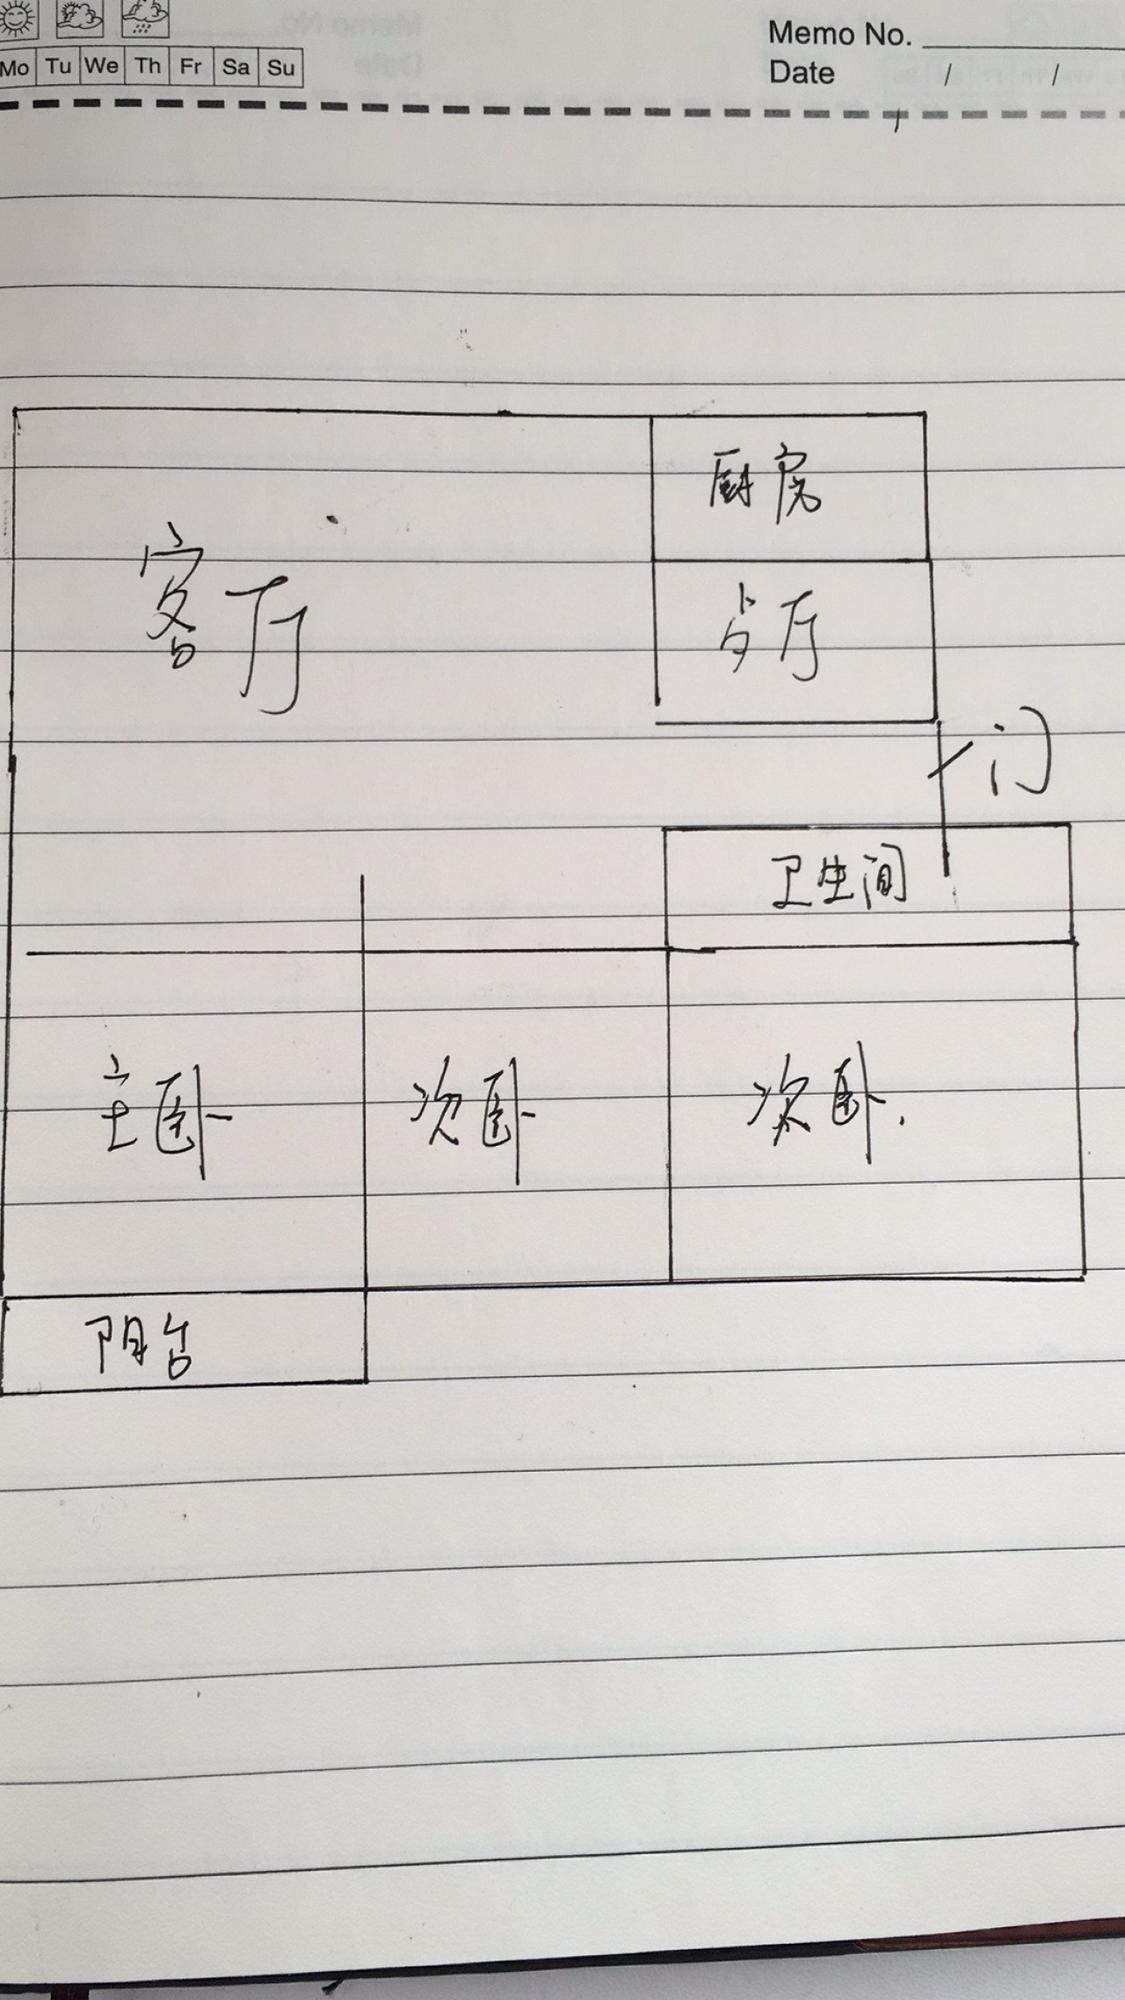 Memo No.
Mo Tu We Th Fr Sa Su
Date / /
厨房
客厅
歺厅
门
卫生间
主卧 次卧 次卧.
阳台